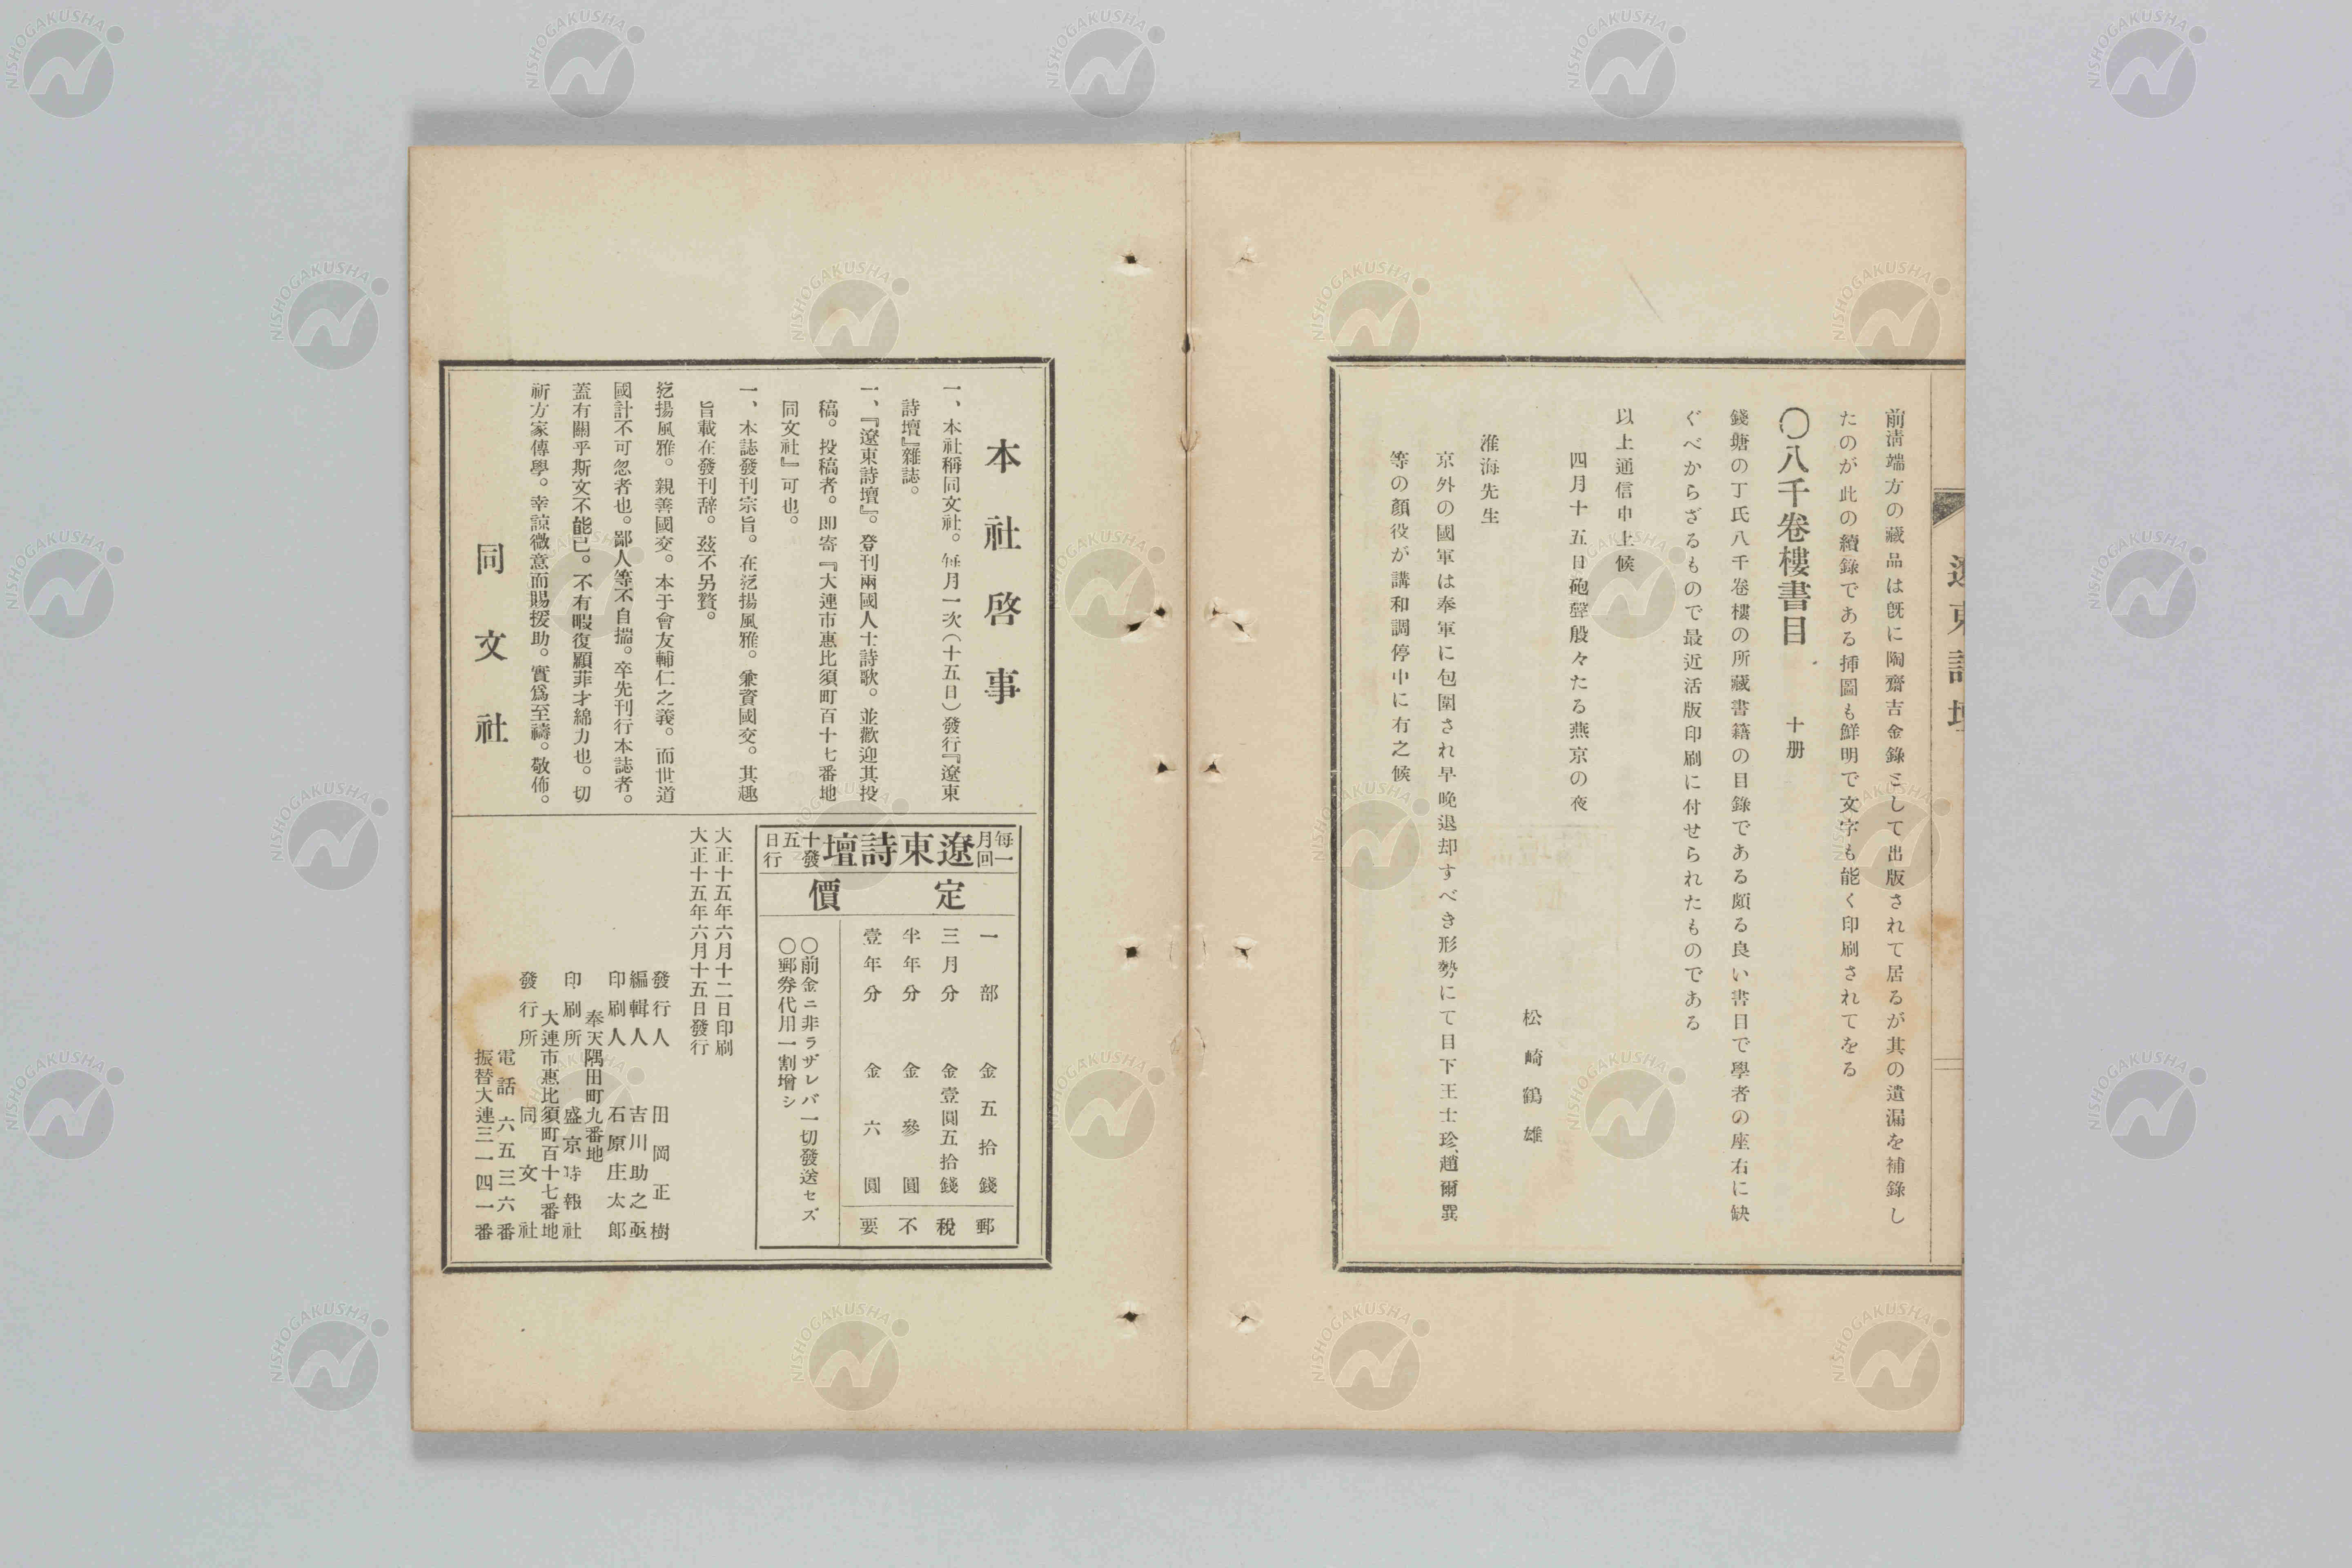 遼東詩壇
前淸端方の藏品は既に陶齋吉金錄として出版されて居るが其の遺漏を補錄し
たのが此の續錄である揷圖も鮮明で文字も能く印刷されてをる
〇八千卷樓書目 十册
錢塘の丁氏八千卷樓の所藏書籍の目錄である頗る良い書目で學者の座右に缺
ぐべからざるもので最近活版印刷に付せられたものである
以上通信申上候
四月十五日砲聲殷々たる燕京の夜
松崎鶴雄
淮海先生
京外の國軍は奉軍に包圍され早晚退却すべき形勢にて目下王士珍、趙爾巽
等の顏役が講和調停中に有之候
本社啓事
一、本社稱同文社。每月一次(十五日)發行『遼東
詩壇』雜誌。
一、『遼東詩壇』。登刊兩國人士詩歌。並歡迎其投
稿。投稿者。即寄『大連市惠比須町百十七番地
同文社』可也。
一、本誌發刊宗旨。在挖揚風雅。兼資國交。其趣
旨載在發刊辞。玆不另贅。
挖揚風雅。親善國交。本于會友輔仁之義。而世道
國計不可忽者也。鄙人等不自揣。卒先刊行本誌者。
蓋有關乎斯文不能已。不有暇復顧菲才綿力也。切
祈方家傳學。幸諒微意而賜援助。實爲至禱。敬佈。
同文社
每月一回 遼東詩壇 十五日發行
定價
一部 金五拾錢 郵
三月分 金壹圓五拾錢 稅
半年分 金參圓 不
壹年分 金六圓 要
〇前金ニ非ラザレバ一切發送セズ
〇郵券代用一割增シ
大正十五年六月十二日印刷
大正十五年六月十五日發行
發行人 田岡正樹
編輯人 吉川助之亟
印刷人 石原庄太郎
奉天隅田町九番地
印刷所 盛京時報社
大連市惠比須町百十七番地
發行所 同文社
電話六五三六番
振替大連三一四一番
NISHOGAKUSHA